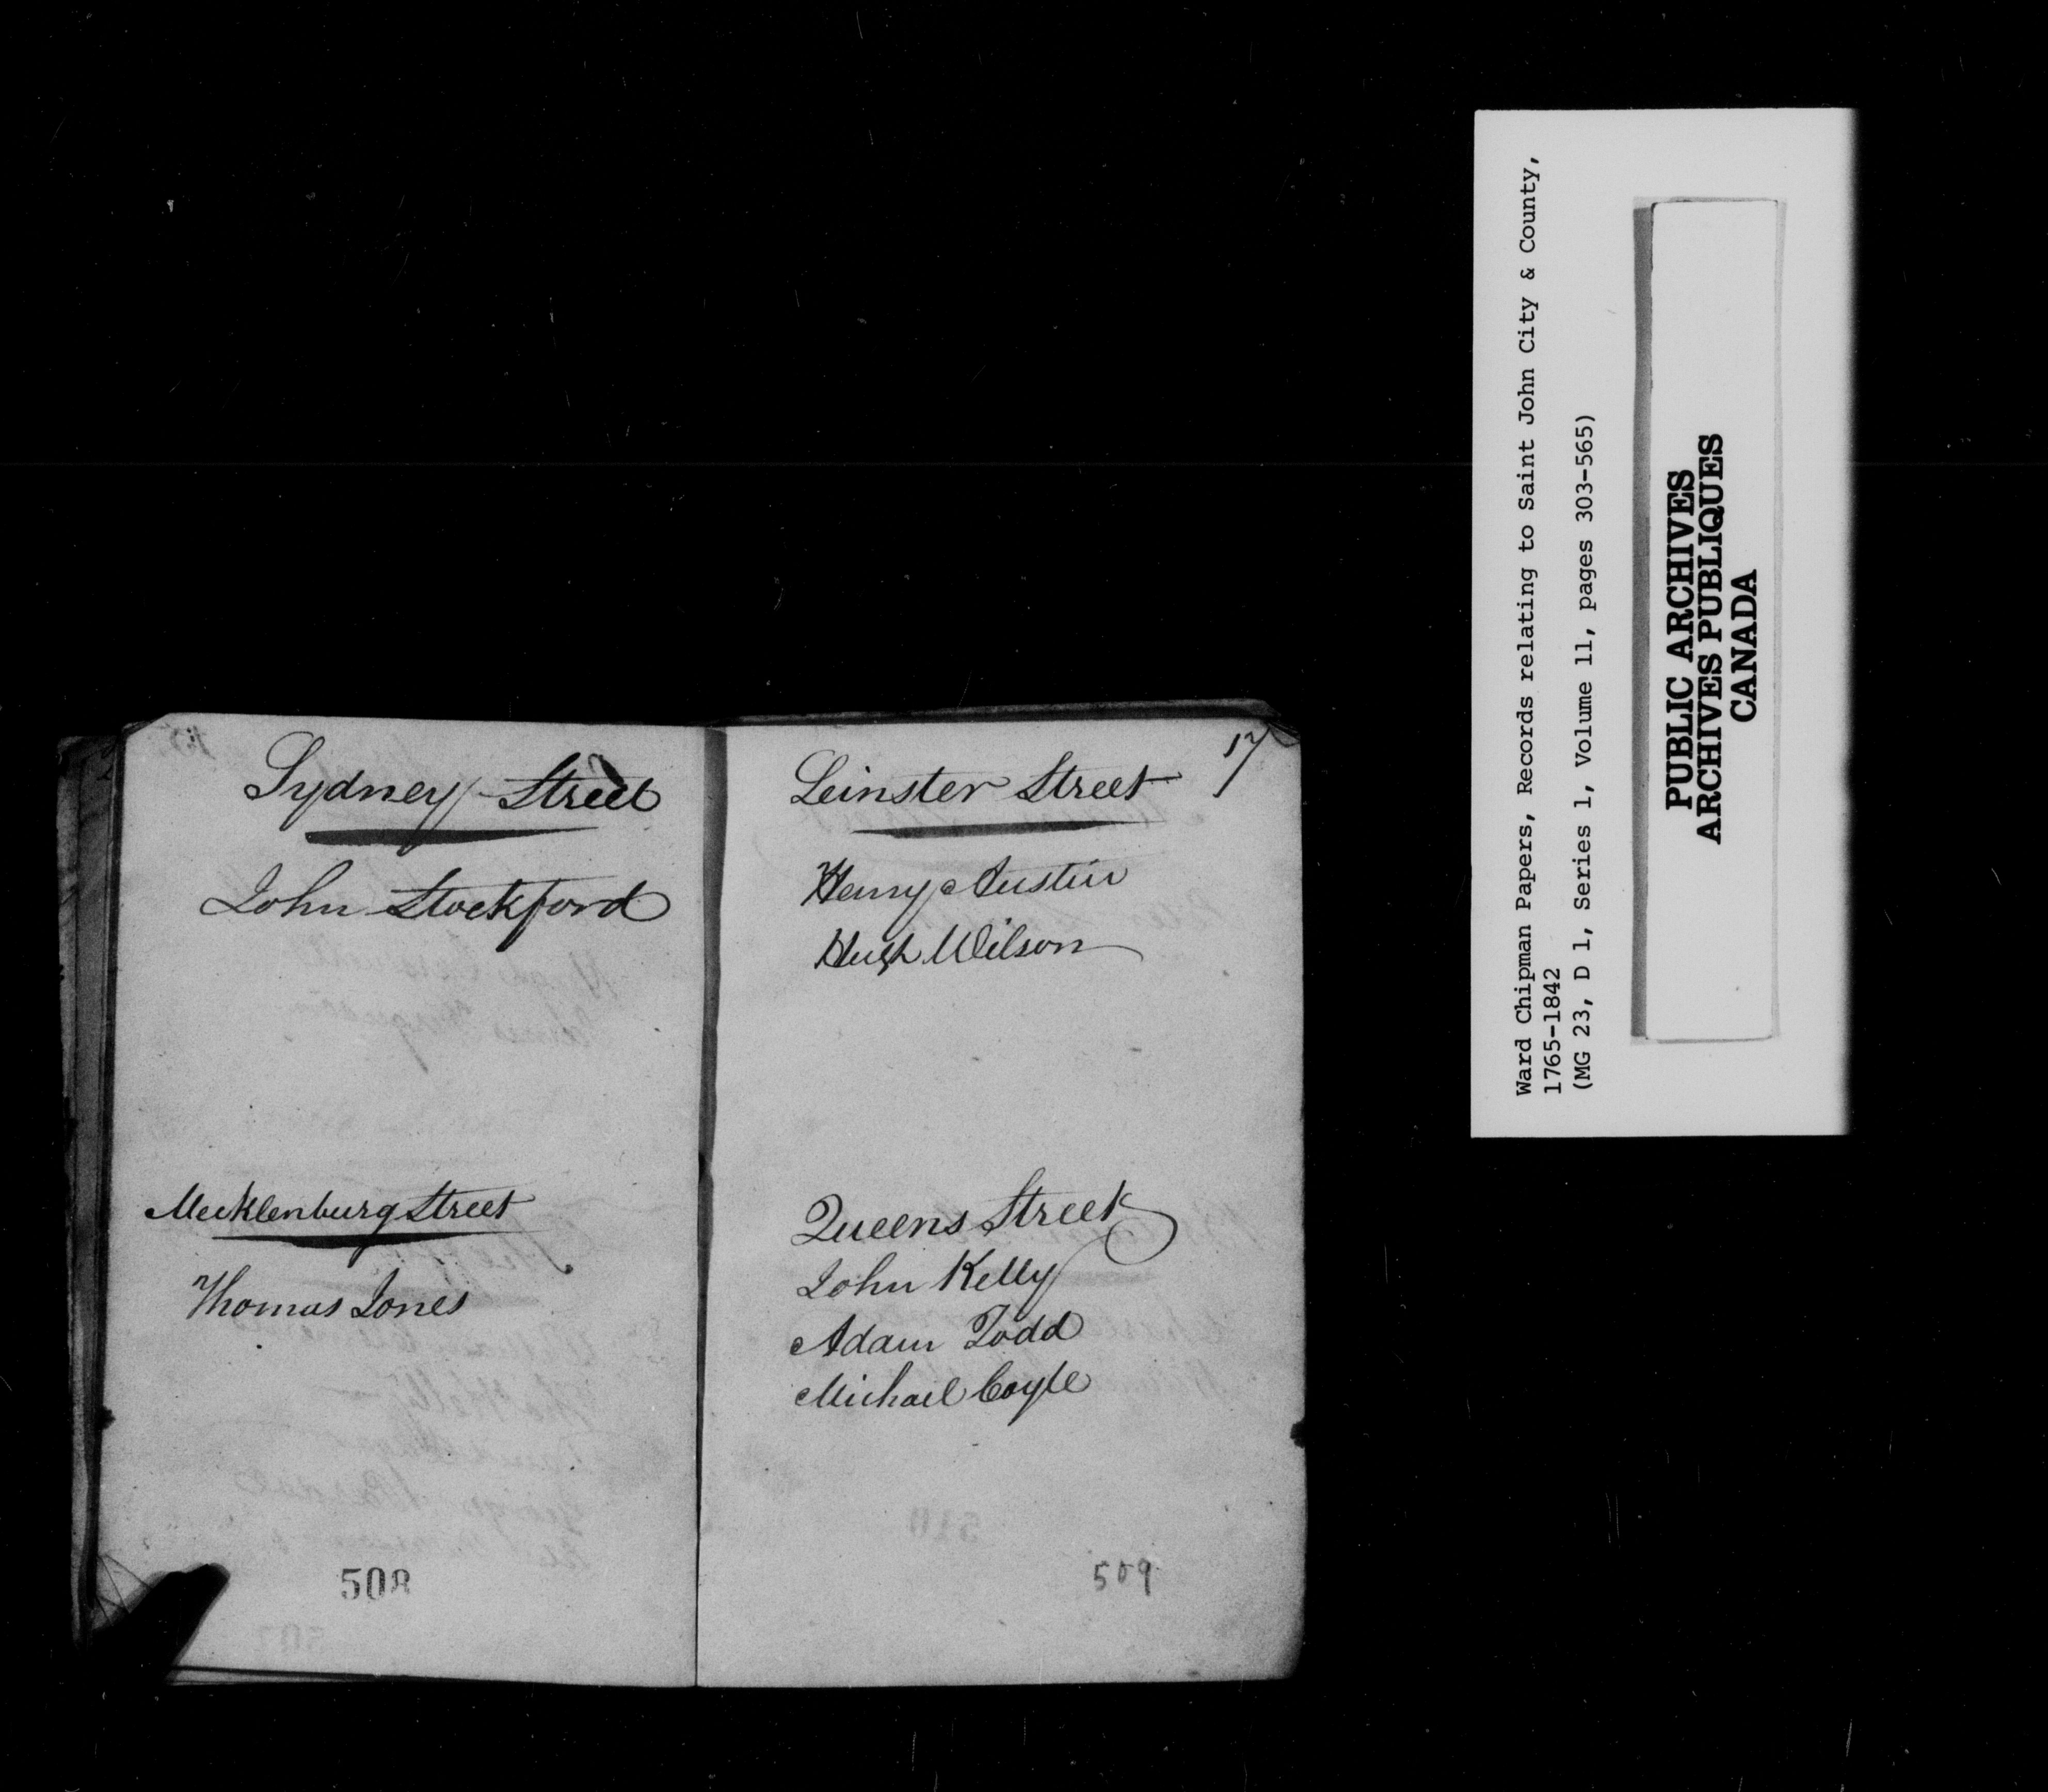 Sydney Street
John Stockford
Mecklenburg Street
Thomas Jones
508
17
Leinster Street
Henry Austin
Hugh Wilson
Queens Street
John Kelly
Adam Todd
Michael Coyle
509
Ward Chipman Papers, Records relating to Saint John City & County,
1765-1842
(MG 23, D 1, Series 1, Volume 11, pages 303-565)
PUBLIC ARCHIVES
ARCHIVES PUBLIQUES
CANADA